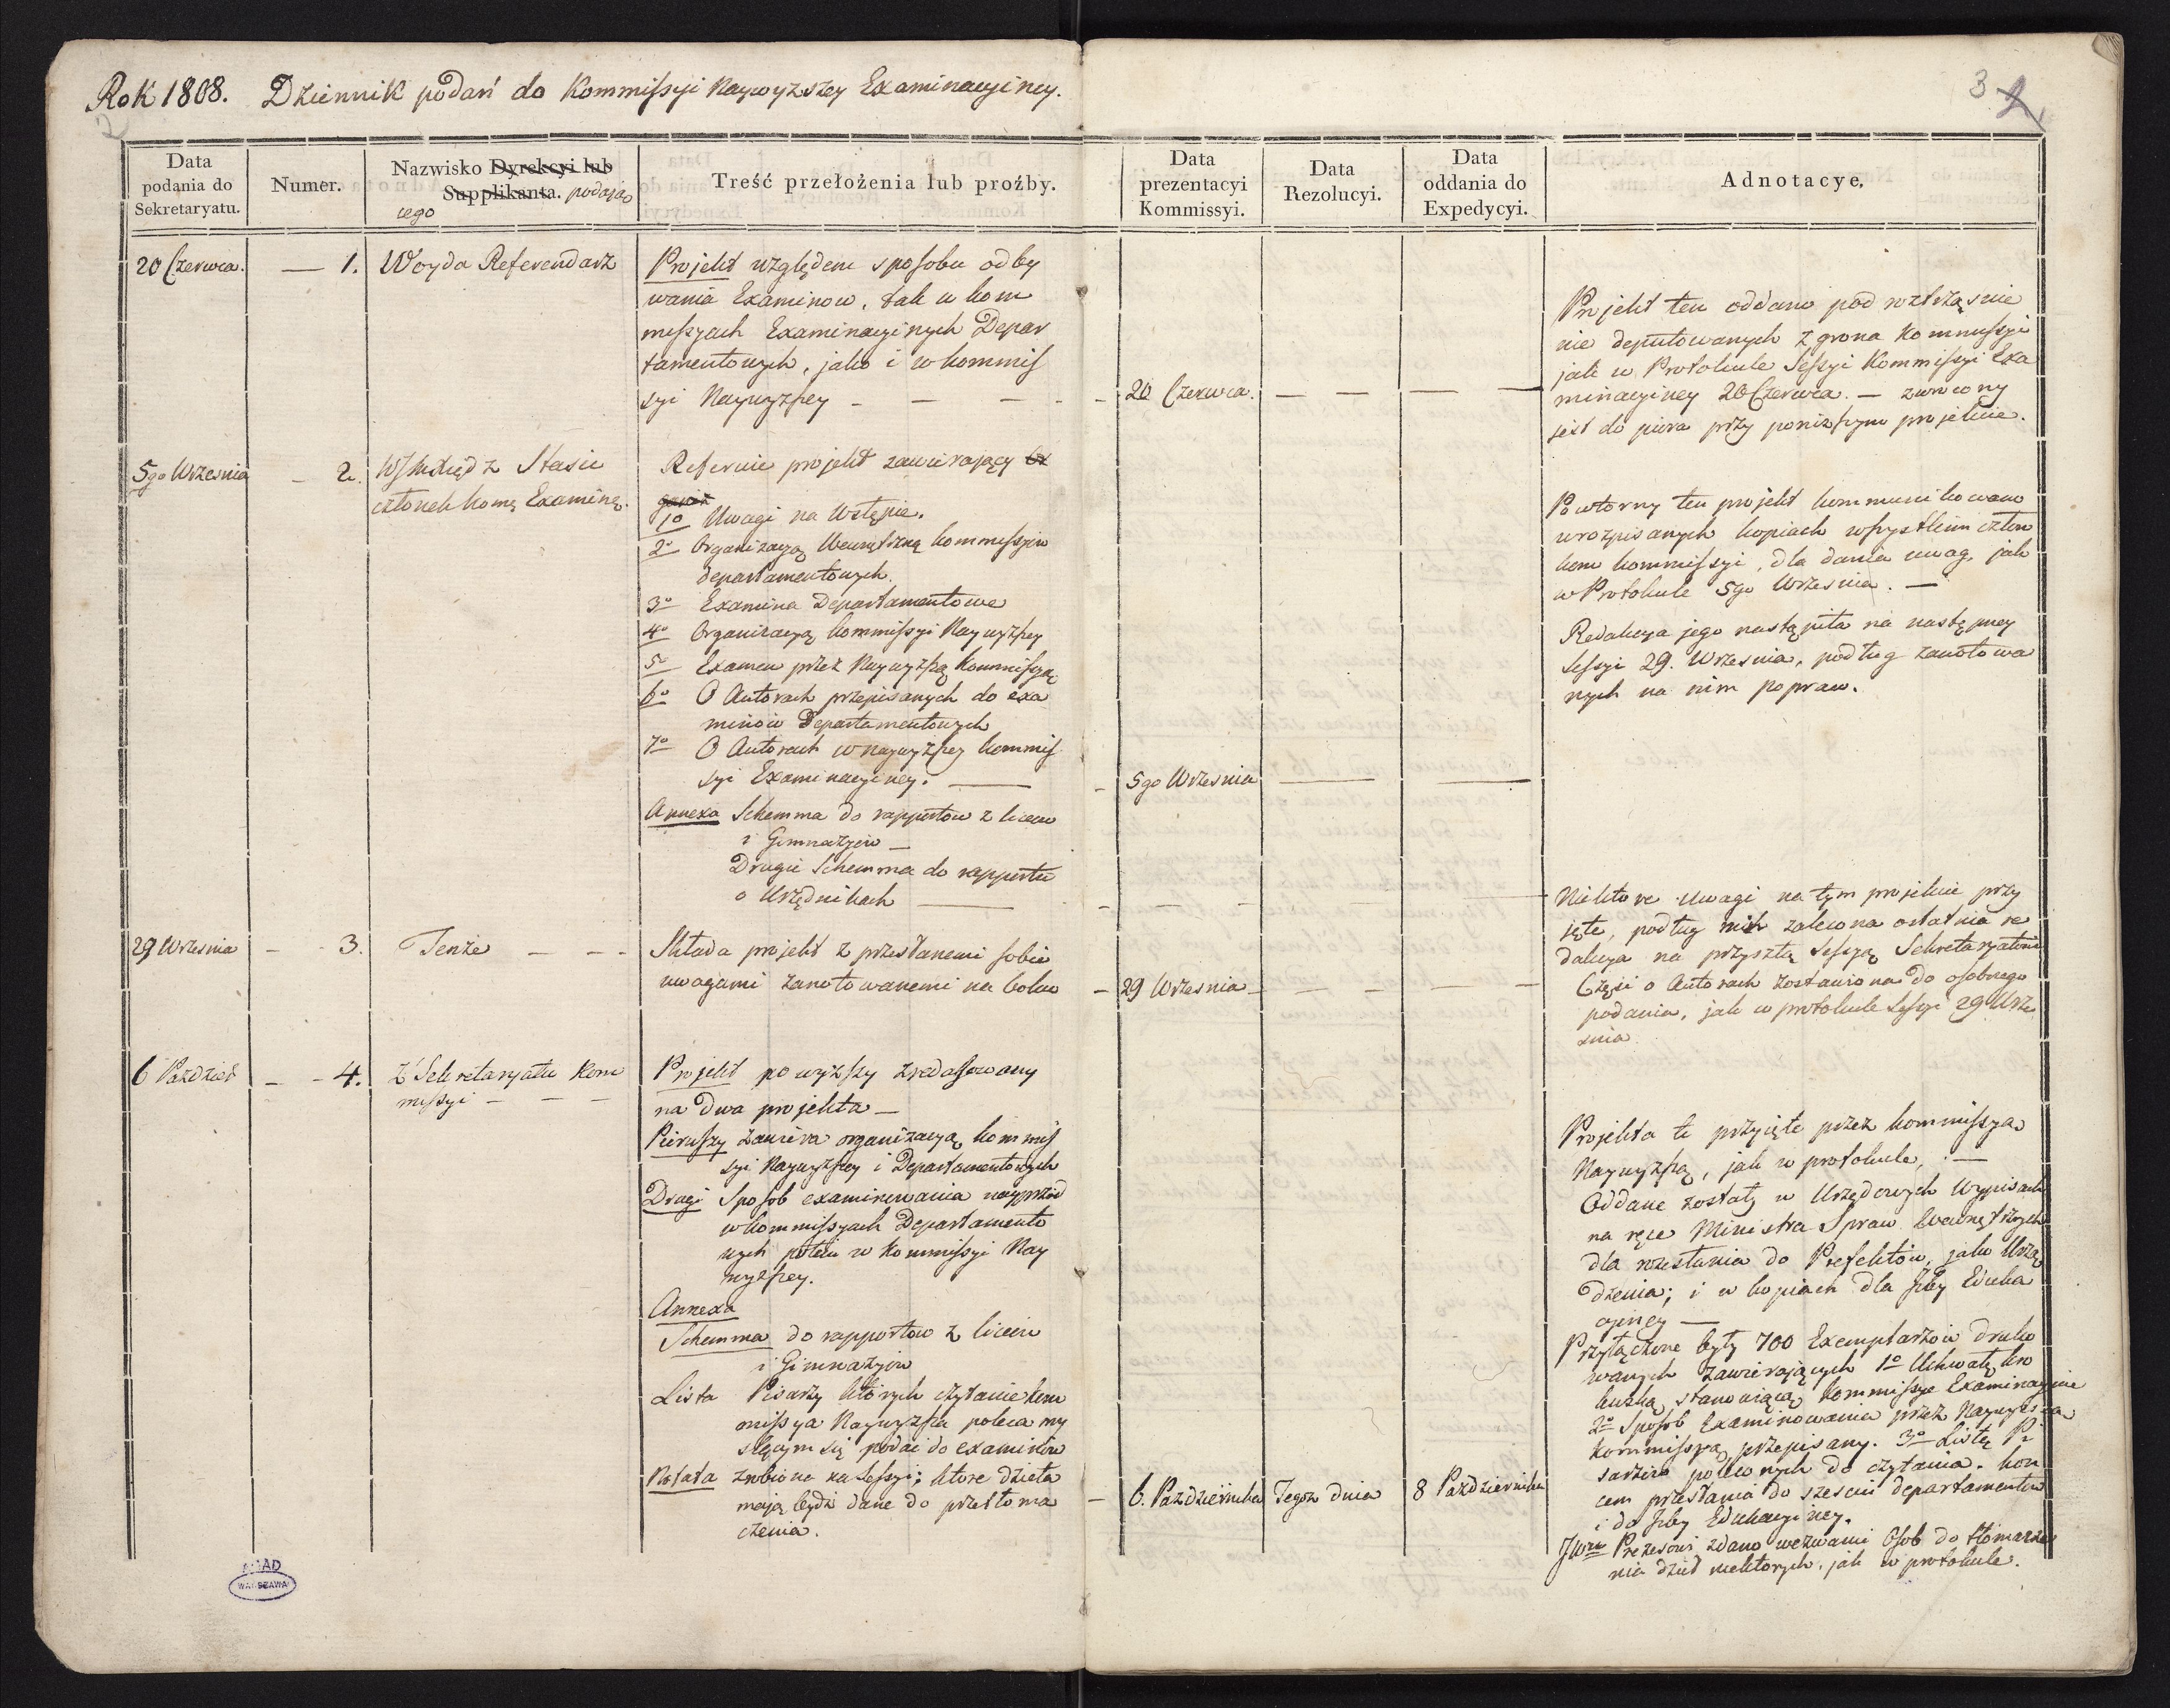 Rok 1808. Dziennik podań do Kommissyi Naywyzszey Examinacyiney.
3 2
2
Data
podania do
Sekretaryatu.
Numer.
Nazwisko Dyrekcyi lub
Supplikanta. podaią
cego
Treść przełożenia lub proźby.
Data
prezentacyi
Kommissyi.
Data
Rezolucyi.
Data
oddania do
Expedycyi.
Adnotacye.
20 Czerwca.
— 1.
Woyda Referendarz
Projekt względem sposobu odby
wania Examinow, tak w kom
missyach Examinacyinych Depar
tamentowych, jako i w kommis
syi Naywyzszey — — —
20 Czerwca. — — — —
Projekt ten oddano pod roztrząsnie
nie deputowanych z grona Kommissyi
jak w Protokule Sessyi Kommissyi Exa
minacyiney 20 Czerwca. — zwrocony
jest do piora przy ponizszym projekcie.
5go Wrzesnia
— 2.
Xiądz Stasic
członek Examina.
Referuie projekt zawieraiący
1o Uwagi na Wstępie.
2o Organizacyą Wewnętrzną kommissyiow
departamentowych.
3o Examina Departamentowe
4o Organizacyą kommissyi Naywyzszey
5o Examen przez Naywyzszą Kommissyą
6o O Autorach przepisanych do exa
minow Departamentowych
7o O Autorach w naywyzszey kommis
syi Examinacyiney. —
Annexa Schemma do rapportow z liceow
i Gimnazyow —
Drugie Schemma do rapportu
o Urzędnikach —
— 5go Wrzesnia — —
Powtorny ten projekt kommunikowano
w rozpisanych kopiach wszystkim człon
kom kommissyi, dla dania uwag, jak
w Protokule 5go Wrzesnia. —
Redakcya jego nastąpiła na następney
Sessyi 29. Wrzesnia, podług zanotowa
nych na nim popraw.
29 Wrzesnia
— 3.
Tenże — — —
Składa projekt z przesłanemi sobie
uwagami zanotowanemi na boku
— 29 Wrzesnia — — — —
Niektore uwagi na tym projekcie przy
jęte, podług nich zalecona ostatnia re
dakcya na przyszłą Sessyą Sekretaryatowi
Częsci o Autorach zostawiona do osobnego
podania, jak w protokule Sessyi 29 Wrze
snia
6 Pazdzier
— — 4.
Z Sekretaryatu Kom
missyi — — —
Projekt powyzszy zredagowany
na dwa projekta —
Pierwszy zawiera organizacyą kommis
syi Naywyzszey i Departamentowych
Drugi Sposob examinowania nayprzod
w kommissyach Departamento
wych potem w Kommissyi Nay
wyzszey.
Annexa
Schemma do rapportow z liceow
i Gimnazyow
Lista Pisarzy których czytanie kom
missya Naywyzsza poleca my
slącym się podac do examinow
Notata zrobiona na Sessyi; ktore dzieła
maią bydz dane do przetłoma
czenia.
— 6. Pazdziernika Tegoz dnia 8 Pazdziernika
Projekta te przyięte przez kommissyą
Naywyzszą, jak w protokule, —
Oddane zostały w Urzędowych Wypisach
na ręce Ministra Spraw Wewnętrznych
dla rozesłania do Prefektów, jako Urzą
dzenia; i w kopiach dla Izby Eduka
cyiney —
Przyłączone były 700 Exemplarzow druko
wanych zawieraiących 1o Uchwałę kro
lewską, stanowiącą kommissye Examinacyine
2o Sposob Examinowania przez Naywyzszą
Kommissyą przepisany. 3o Listę Pi
sarzow poleconych do czytania. kon
cem przesłania do szesciu departamentow
i do Izby Edukacyiney.
JWmu Prezesowi zdano wezwanie Osob do tłomacze
nia dzieł niektorych, jak w protokule.
AGAD
WARSZAWA